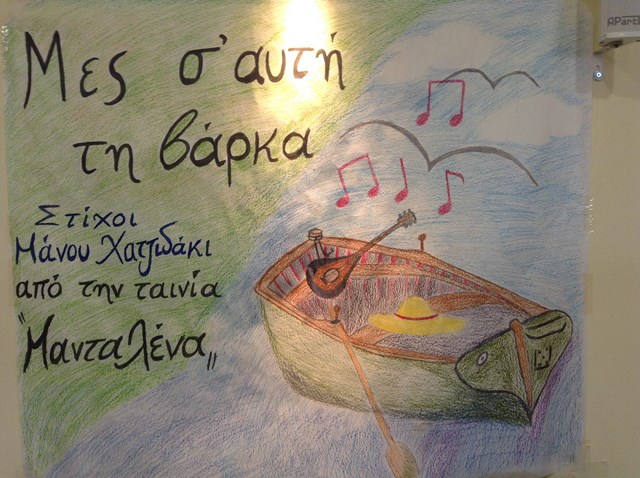 Μες σ' αυτή
τη βάρκα
Στίχοι
Μάνου Χατζιδάκι
από την ταινία
"Μανταλένα"